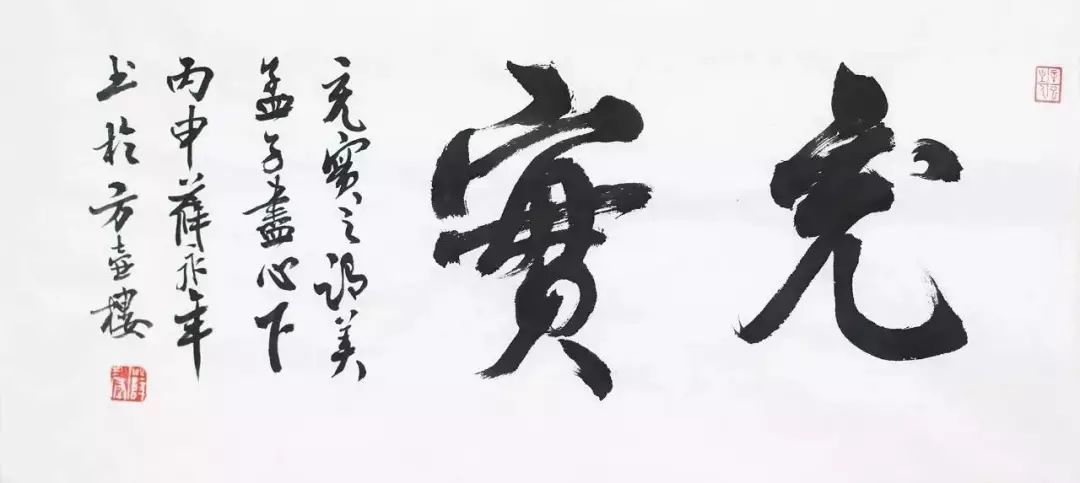 充實
充實之謂美
孟子盡心下
丙申薛永年
书於方壺樓